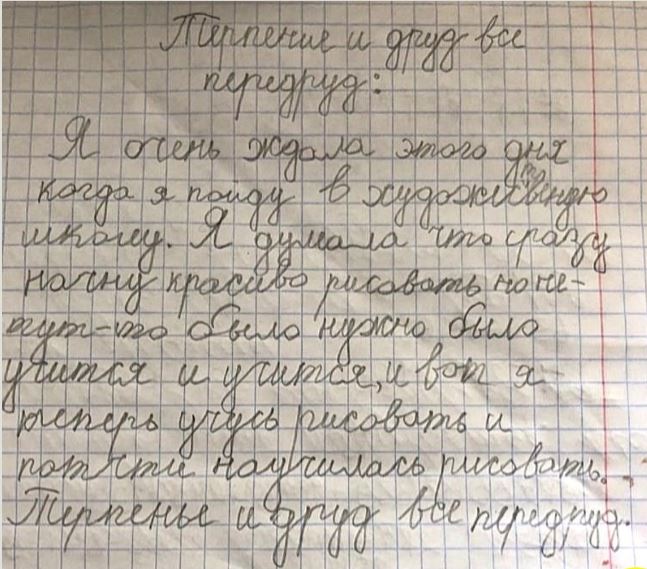 Терпение и друд все
передруд:
Я очень ждала этого дня
когда я пойду в художиственую
школу. Я думала что сразу
начну красиво рисовать но не-
тут-то было нужно было
учится и учится, и вот я-
теперь учусь рисовать и
потчти научилась рисовать.
Терпенье и друд все передруд.